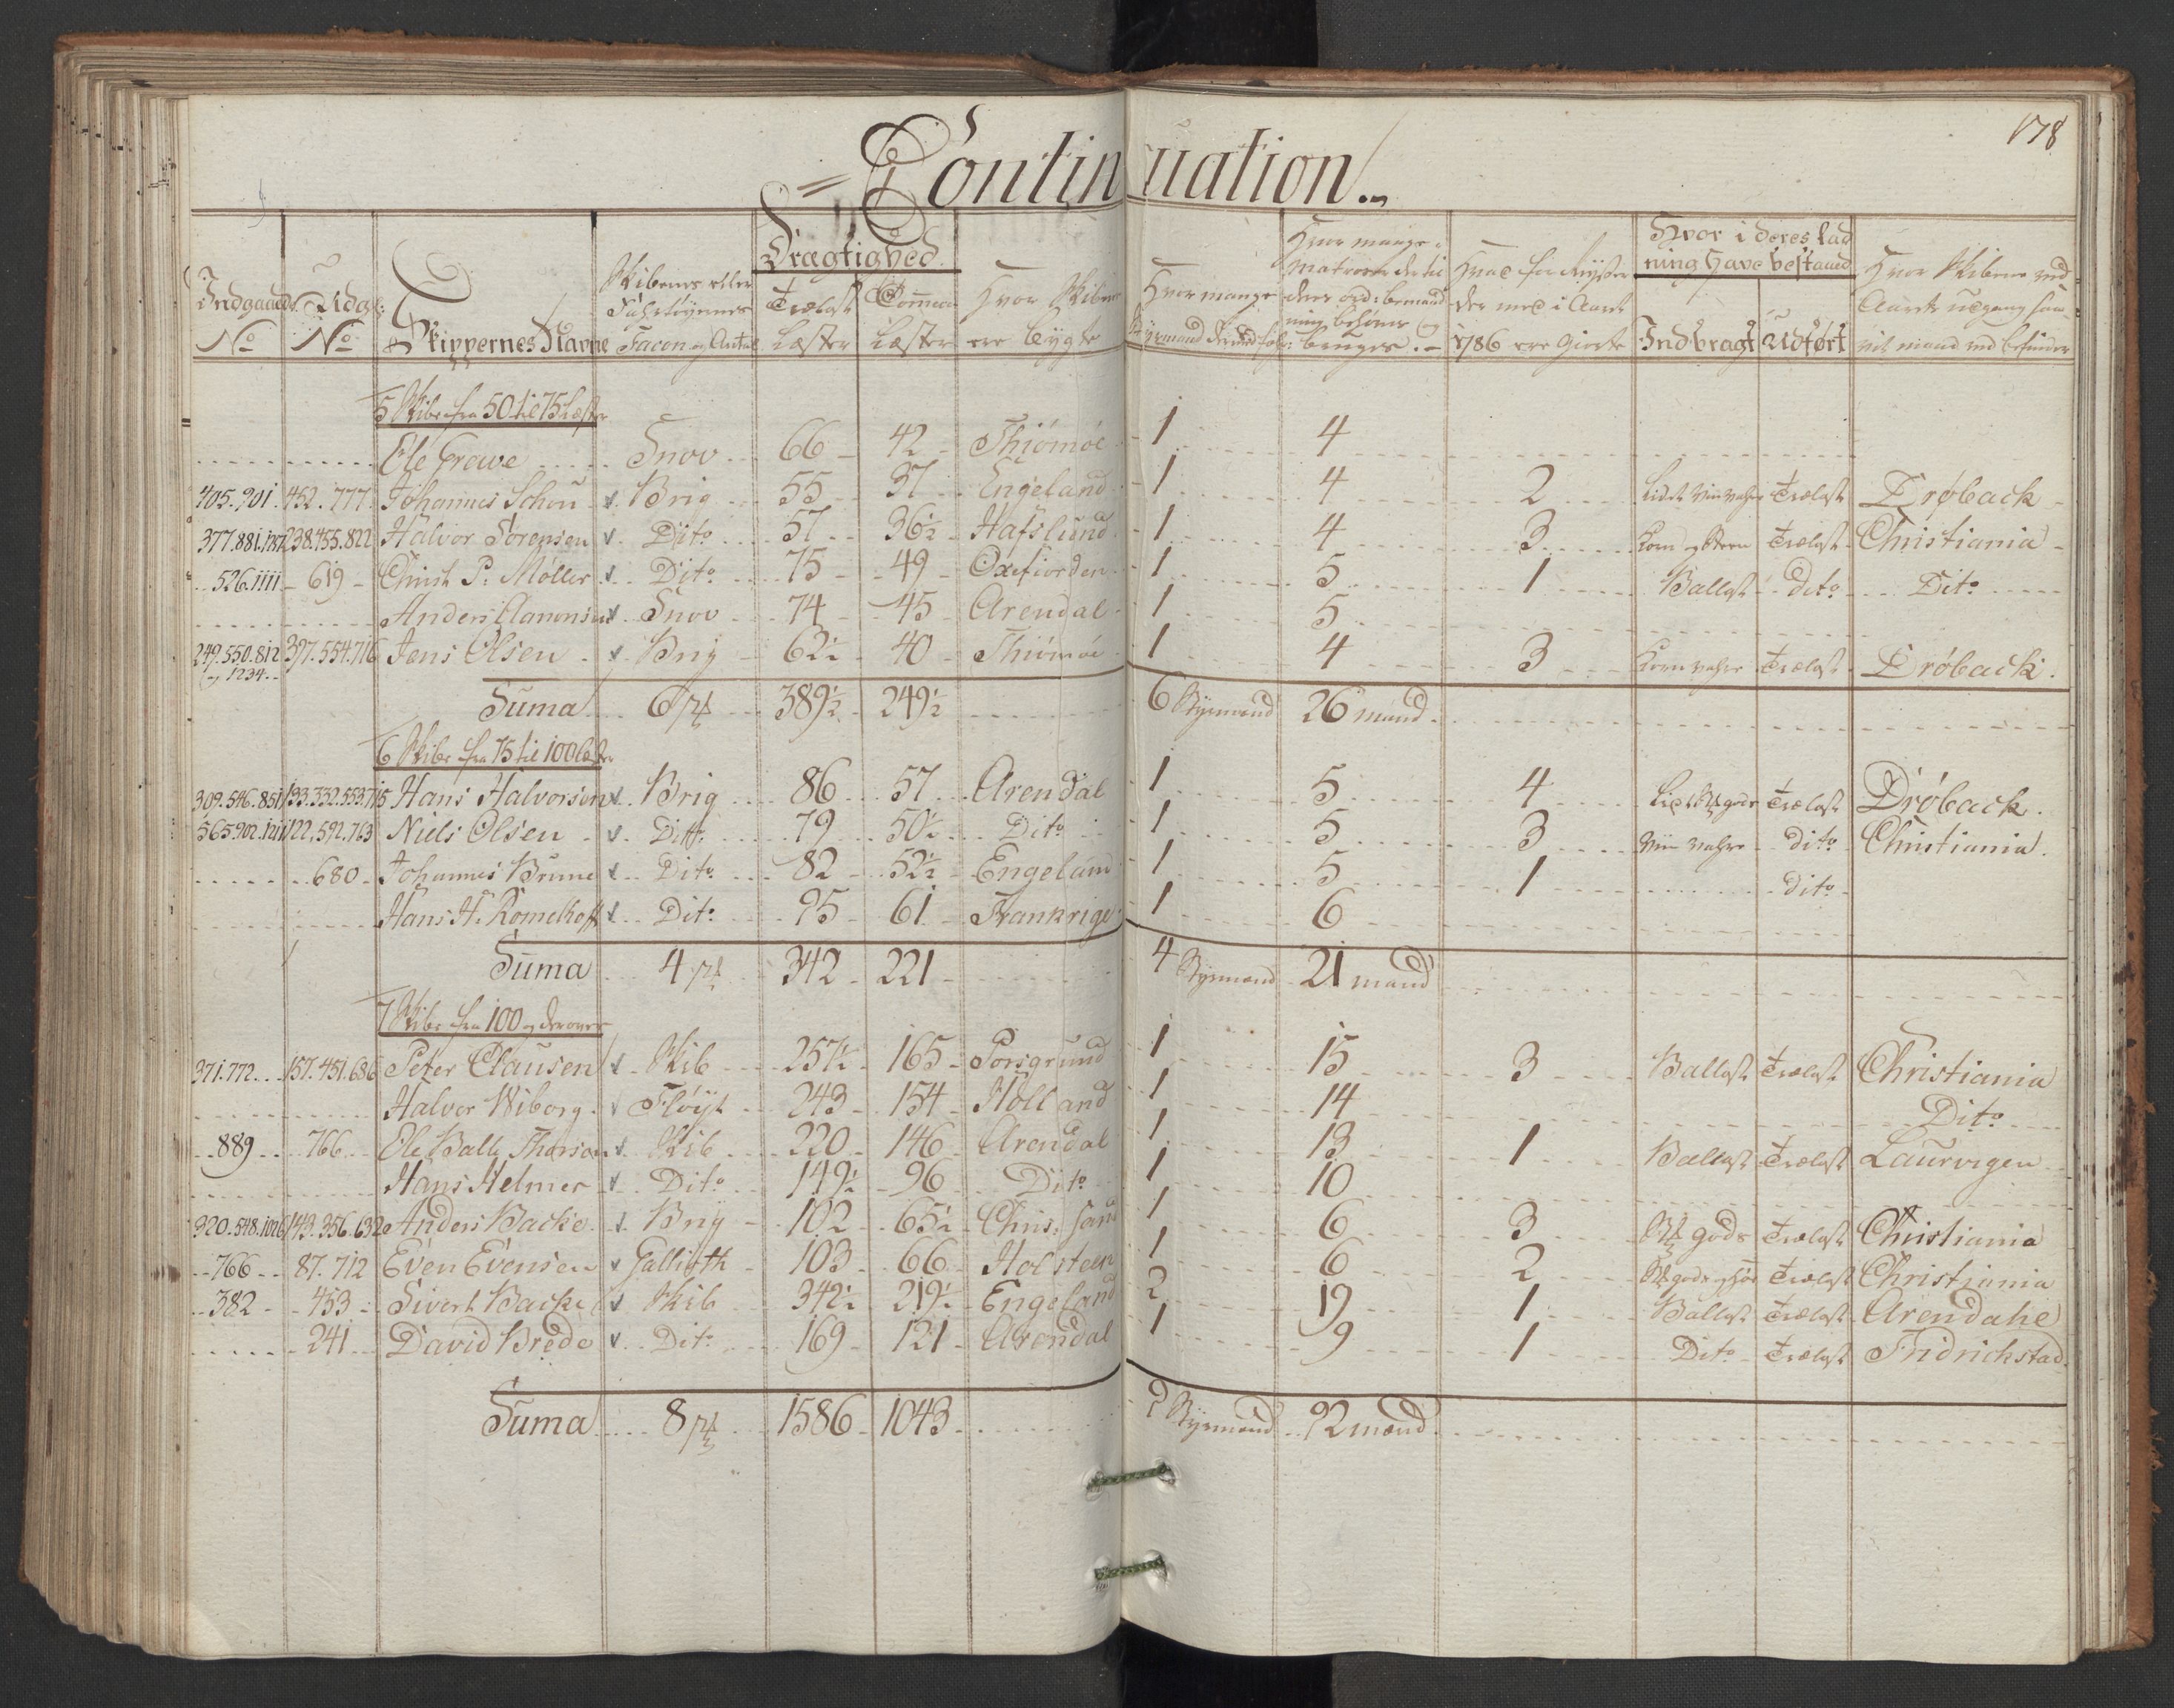 178
Continuation
Indgaaende No | Udg: No | Skippernes Navne | Skibenes eller Fahrtøyernes Facon og Antal | Drægtighed Trælast Læster | Commerce Læster | Hvor Skibene ere bygte | Hvor mange Styrmænd | Hvor mange Matroser der til deres ord: bemanding behøves og bruges | Hvad for Reyser der med i Aaret 1786 ere giorte | Hvor i deres ladning have bestaaed Indbragt | Udført | Hvor Skibene ved Aarets udgang
5 Skibe fra 50 til 75 Læster
Ole Grewe Snov 66 42 Thiømøe 1 4
405. 901. 452. 777. Johannes Schou Brig 55 37 Engeland 1 4 2 Trælast Drøback
377. 881. 238. 455. 822 Halvor Sørensen Dito 57 36½ Hafslund 1 4 3 Korn og Trælast Christiania
526. 1111 619 Christ P: Møller Dito 75 49 Oxefiorden 1 5 1 Ballast dito Dito
Anders Aanonsen Snov 74 45 Arendal 1 5
249. 550. 812 og 1234 397. 554. 716 Jens Olsen Brig 62½ 40 Thiømøe 1 4 3 Korn vahre Trælast Drøback.
Suma 6 389½ 249½ 6 Styrmænd 26 mand
6 Skibe fra 75 til 100 Læster
309. 546. 851 133. 332. 553. 715 Hans Halvorsen Brig 86 57 Arendal 1 5 4 gods Trælast Drøback.
565. 902. 1211 122. 592. 763 Niels Olsen Dito 79 50½ Dito 1 5 3 vahre dito Christiania.
680 Johannes Brune Dito 82 52½ Engeland 1 5 1 dito
Hans H: Romelhoff Dito 95 61 Frankrige 1 6
Suma 4 342 221 4 Styrmænd 21 mand
7 Skibe fra 100 og derover
371. 772 157. 451. 686 Peter Clausen Skib 257½ 165 Porsgrund 1 15 3 Ballast Trælast Christiania
Halvor Wiborg Fløyt 243 154 Holland 1 14 Dito
889 766 Ole Balle Thorson Skib 220 146 Arendal 1 13 1 Ballast Trælast Laurvigen
Hans Helmer Dito 149½ 96 Dito 1 10
320. 548. 1026 143. 356. 632 Anders Backe Brig 102 65½ Chris: Sand 1 6 3 gods Trælast Christiania
766 87. 712 Even Evensen Gallioth 103 66 Holsteen 1 6 2 Trælast Christiania
382 453 Sivert Backe Skib 342½ 219½ Engeland 2 19 1 Ballast Trælast Arendahl
241 David Brede Dito 169 121 Arendal 1 9 1 Dito Trælast Fridrichstad
Suma 8 1586 1043 9 Styrmænd 92 mand